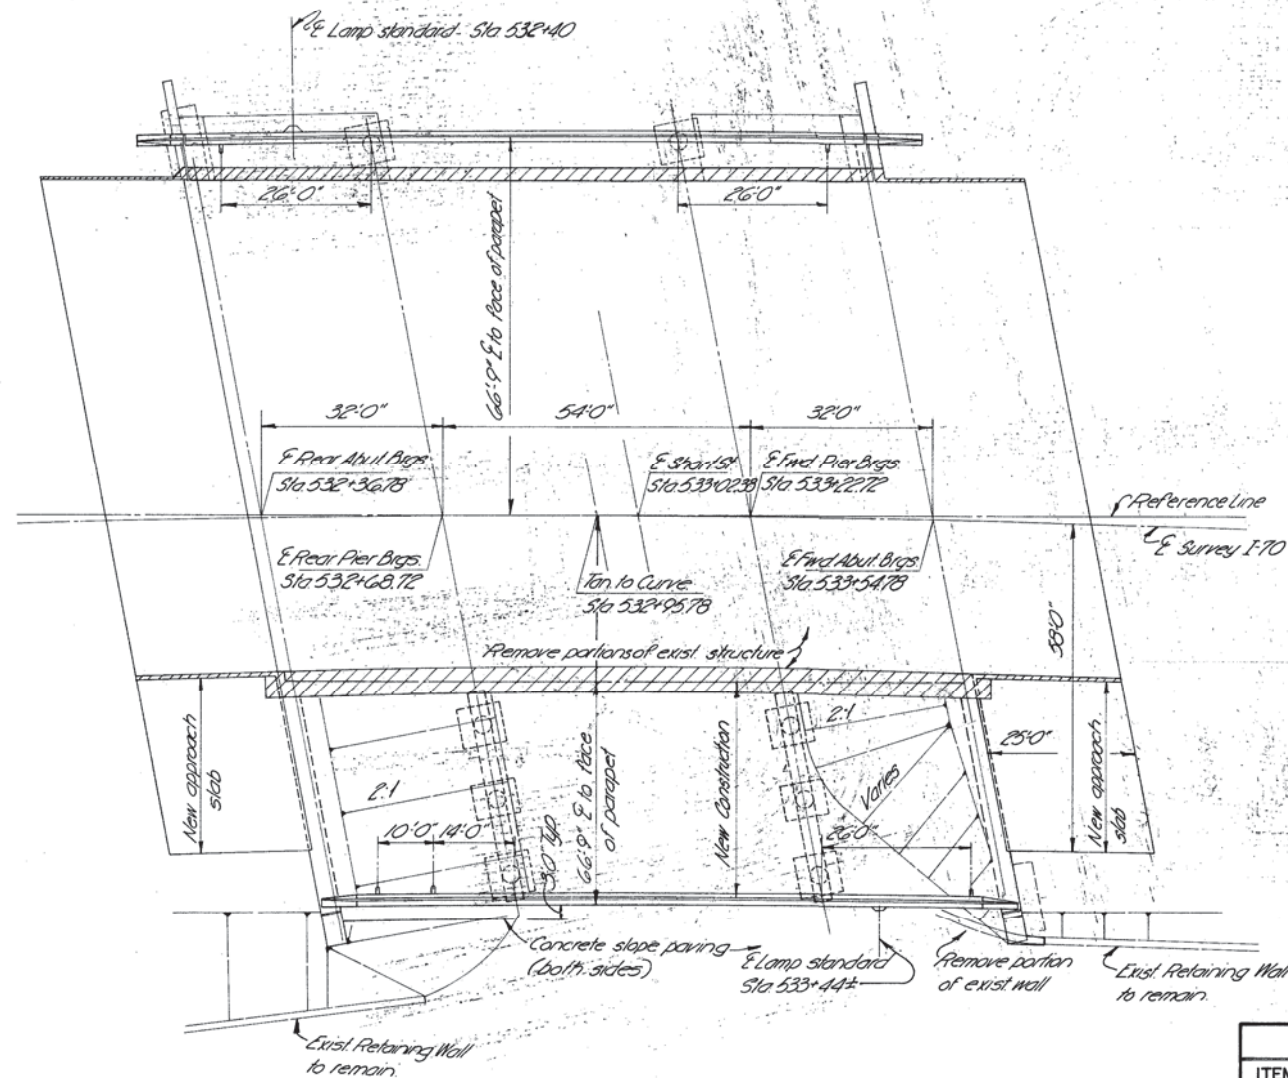 ℄ Lamp standard - Sta 532+40
26'-0"
26'-0"
66'-9" ℄ to face of parapet
32'-0"
54'-0"
32'-0"
℄ Rear Abut Brgs.
Sta 532+36.78
℄ Short St
Sta 533+02.38
℄ Fwd. Pier Brgs.
Sta 533+22.72
Reference Line
℄ Survey I-70
℄ Rear Pier Brgs.
Sta 532+68.72
Tan to Curve
Sta 532+95.78
℄ Fwd Abut Brgs
Sta 533+54.78
58'-0"
Remove portions of exist. structure
New approach
slab
2:1
10'-0"
14'-0"
3'-0" Typ
66'-9" ℄ to face
of parapet
New Construction
2:1
Varies
26'-0"
25'-0"
New approach
slab
Concrete slope paving
(both sides)
℄ Lamp standard
Sta 533+44±
Remove portion
of exist wall
Exist. Retaining Wall
to remain.
Exist. Retaining Wall
to remain.
ITEM